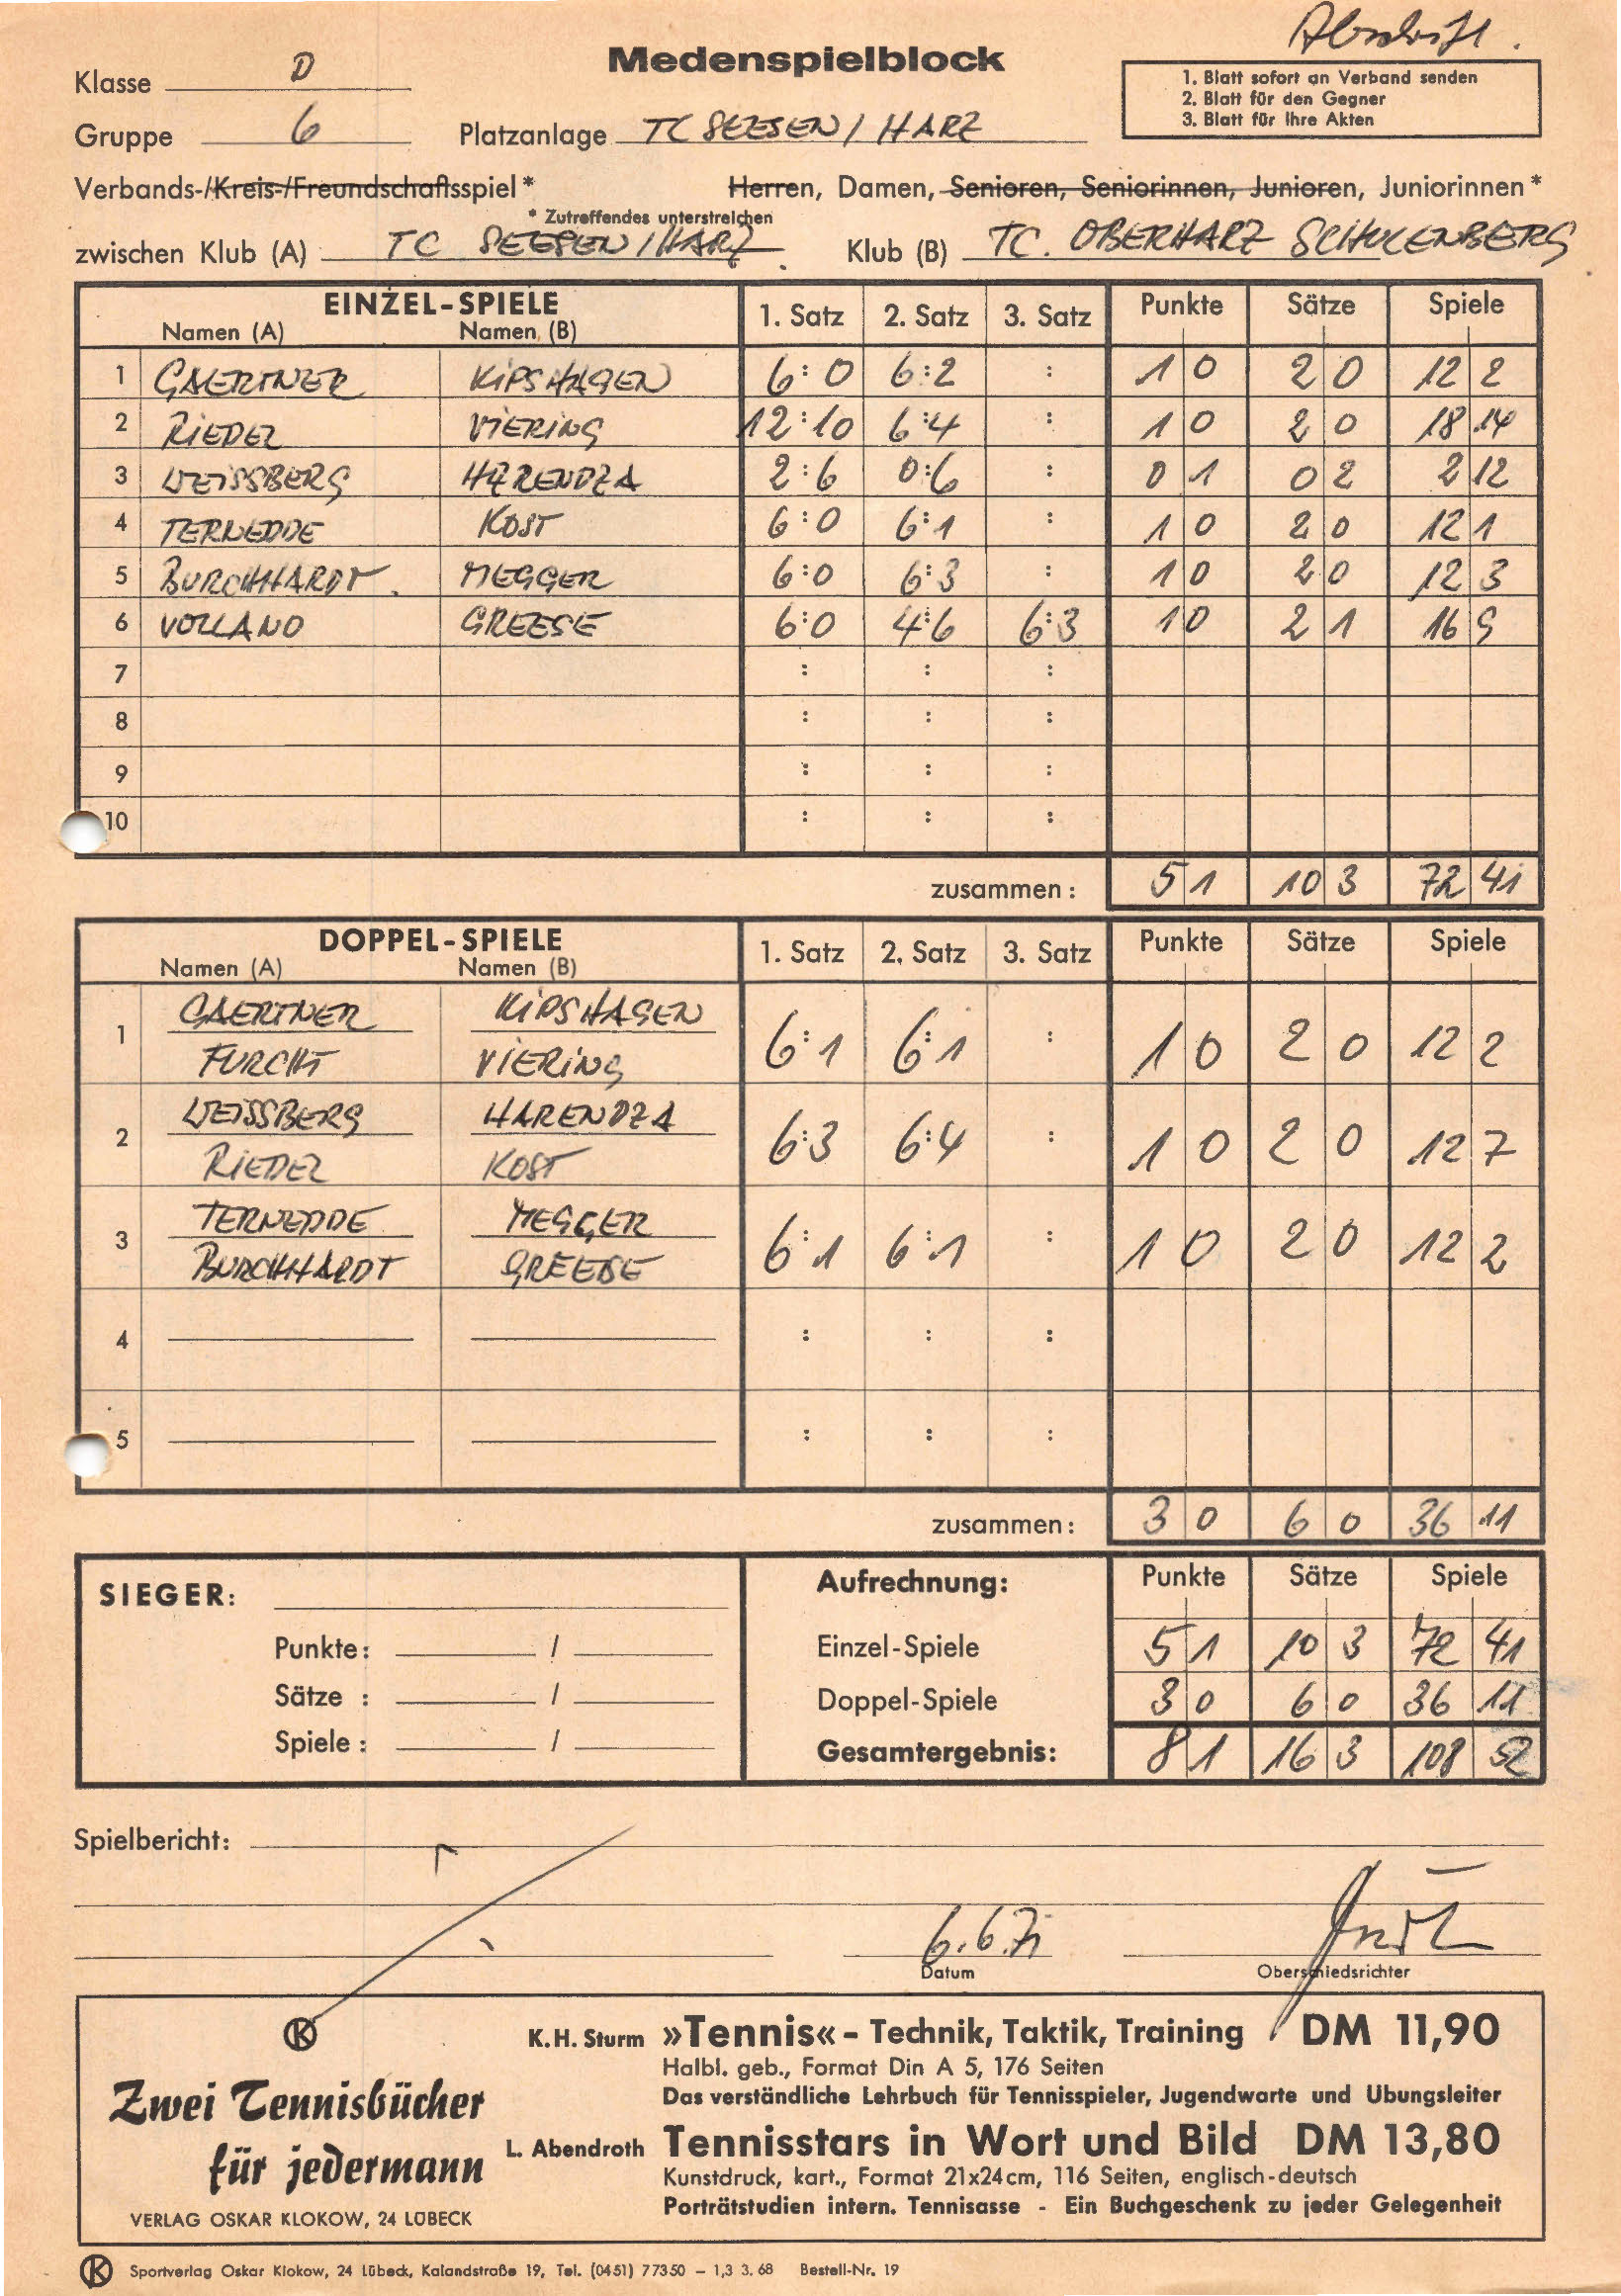 Abschrift.
Medenspielblock
Klasse D
1. Blatt sofort an Verband senden
2. Blatt für den Gegner
3. Blatt für Ihre Akten
Gruppe 6 Platzanlage TC SEESEN / HARZ
Verbands-/Kreis-/Freundschaftsspiel* Herren, Damen, Senioren, Seniorinnen, Junioren, Juniorinnen*
* Zutreffendes unterstreichen
zwischen Klub (A) TC SEESEN / HARZ Klub (B) TC. OBERHARZ SCHULENBERG
EINZEL-SPIELE 1. Satz 2. Satz 3. Satz Punkte Sätze Spiele
Namen (A) Namen (B)
1 GAERTNER KIPSHAGEN 6:0 6:2 : 1 0 2 0 12 2
2 RIEDEL VIERING 12:10 6:4 : 1 0 2 0 18 14
3 WEISSBERG HARENDZA 2:6 0:6 : 0 1 0 2 2 12
4 TERNEDDE KOST 6:0 6:1 : 1 0 2 0 12 1
5 BURCHHARDT MEGGER 6:0 6:3 : 1 0 2 0 12 3
6 VOLLAND GREESE 6:0 4:6 6:3 1 0 2 1 16 9
7 : : :
8 : : :
9 : : :
10 : : :
zusammen: 5 1 10 3 72 41
DOPPEL-SPIELE 1. Satz 2. Satz 3. Satz Punkte Sätze Spiele
Namen (A) Namen (B)
GAERTNER KIPSHAGEN
1 6:1 6:1 : 1 0 2 0 12 2
FURCHT VIERING
WEISSBERG HARENDZA
2 6:3 6:4 : 1 0 2 0 12 7
RIEDEL KOST
TERNEDDE MEGGER
3 6:1 6:1 : 1 0 2 0 12 2
BURCHHARDT GREESE
4 : : :
5 : : :
zusammen: 3 0 6 0 36 11
SIEGER: Aufrechnung: Punkte Sätze Spiele
Punkte: / Einzel-Spiele 5 1 10 3 72 41
Sätze : / Doppel-Spiele 3 0 6 0 36 11
Spiele : / Gesamtergebnis: 8 1 16 3 108 52
Spielbericht:
6.6.71
Datum Oberschiedsrichter
K
K.H. Sturm »Tennis« - Technik, Taktik, Training DM 11,90
Halbl. geb., Format Din A 5, 176 Seiten
Zwei Tennisbücher
Das verständliche Lehrbuch für Tennisspieler, Jugendwarte und Übungsleiter
für jedermann
L. Abendroth Tennisstars in Wort und Bild DM 13,80
Kunstdruck, kart., Format 21x24cm, 116 Seiten, englisch-deutsch
VERLAG OSKAR KLOKOW, 24 LÜBECK
Porträtstudien intern. Tennisasse - Ein Buchgeschenk zu jeder Gelegenheit
K Sportverlag Oskar Klokow, 24 Lübeck, Kalandstraße 19, Tel. (0451) 77350 – 1,3 3. 68 Bestell-Nr. 19